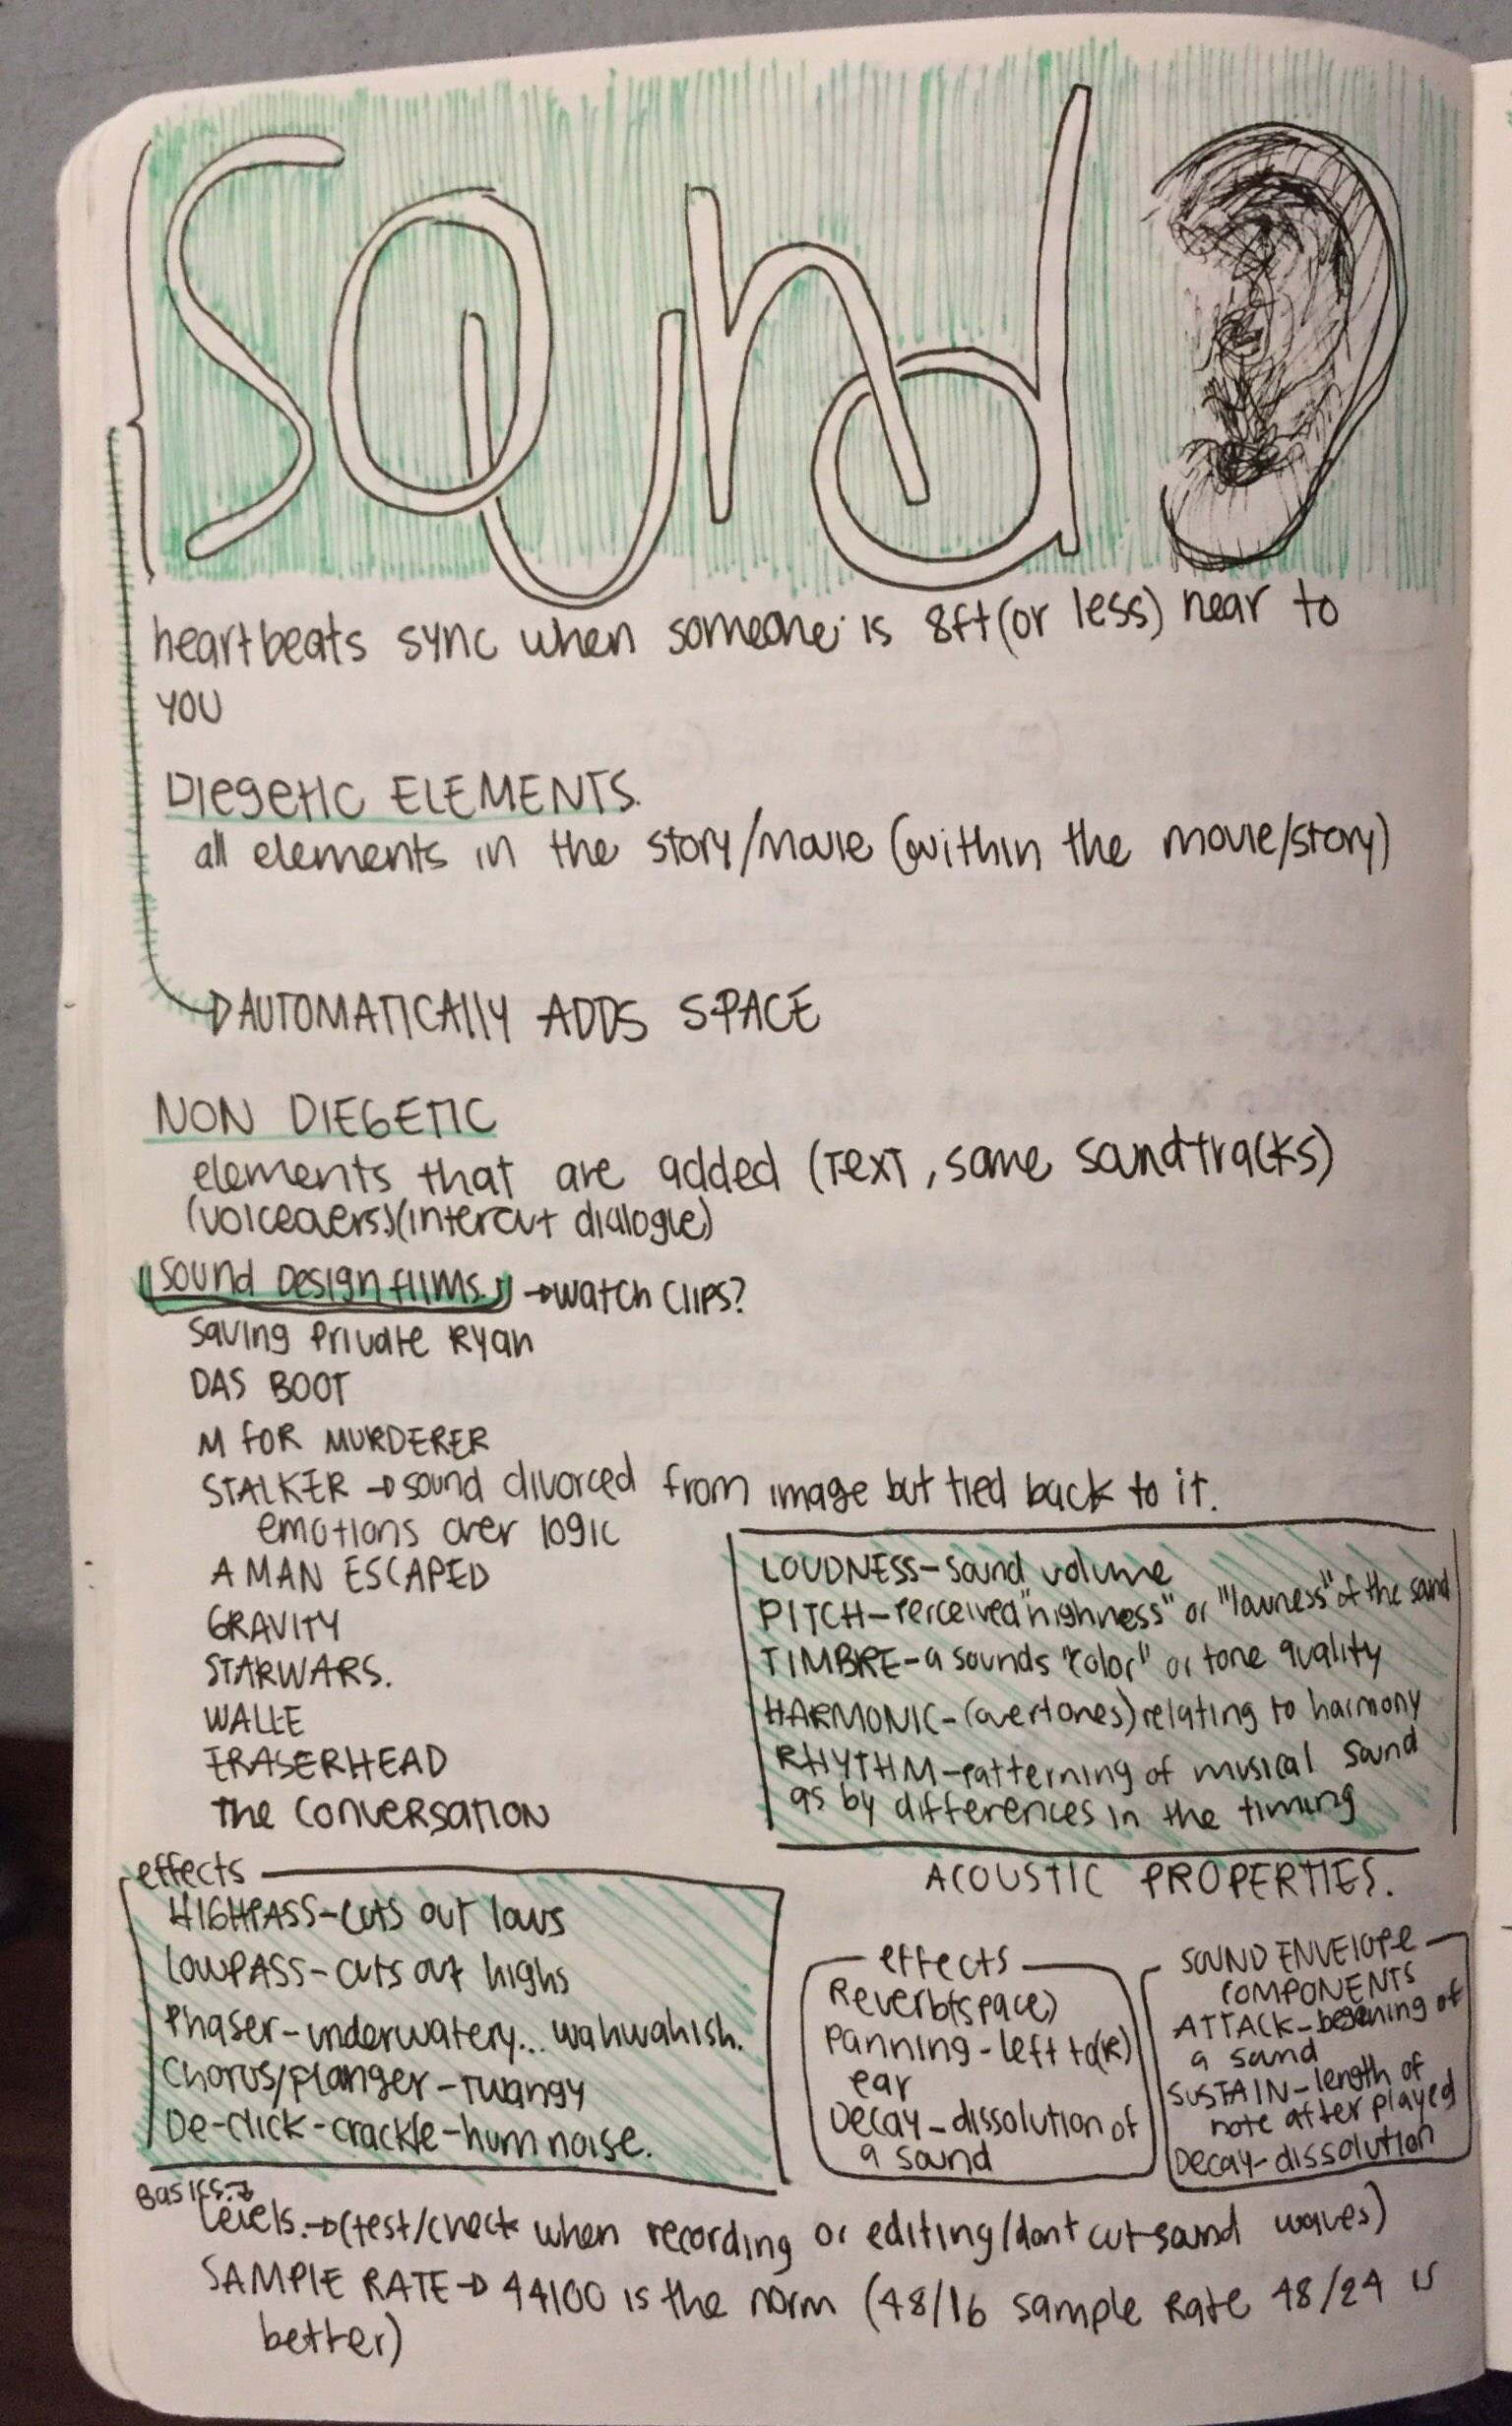 Sound
heartbeats sync when someone is 8ft (or less) near to
YOU
Diegetic ELEMENTS.
all elements in the story/movie (within the movie/story)
AUTOMATICALLY ADDS SPACE
NON DIEGETIC
elements that are added (TEXT, some soundtracks)
(voiceovers)(intercut dialogue)
Sound Design films. →watch clips?
Saving Private Ryan
DAS BOOT
M FOR MURDERER
STALKER → sound divorced from image but tied back to it.
emotions over logic
A MAN ESCAPED
GRAVITY
STARWARS.
WALLE
ERASERHEAD
The Conversation
LOUDNESS-sound volume
PITCH-Perceived "highness" or "lowness" of the sound
TIMBRE-a sounds "color" or tone quality
HARMONIC-(overtones) relating to harmony
RHYTHM-patterning of musical sound
as by differences in the timing
ACOUSTIC PROPERTIES.
effects
HIGHPASS-cuts out lows
LOWPASS-cuts out highs
Phaser-underwatery... wahwahish.
Chorus/flanger-twangy
De-click-crackle-hum noise.
effects
Reverb(space)
Panning-left to(R)
ear
Decay-dissolution of
a sound
SOUND ENVELOPE
COMPONENTS
ATTACK- of
a sound
SUSTAIN-length of
note after played
Decay-dissolution
Basics→
Levels.→(test/check when recording or editing/dont cut sound waves)
SAMPLE RATE→ 44100 is the norm (48/16 sample Rate 48/24 is
better)